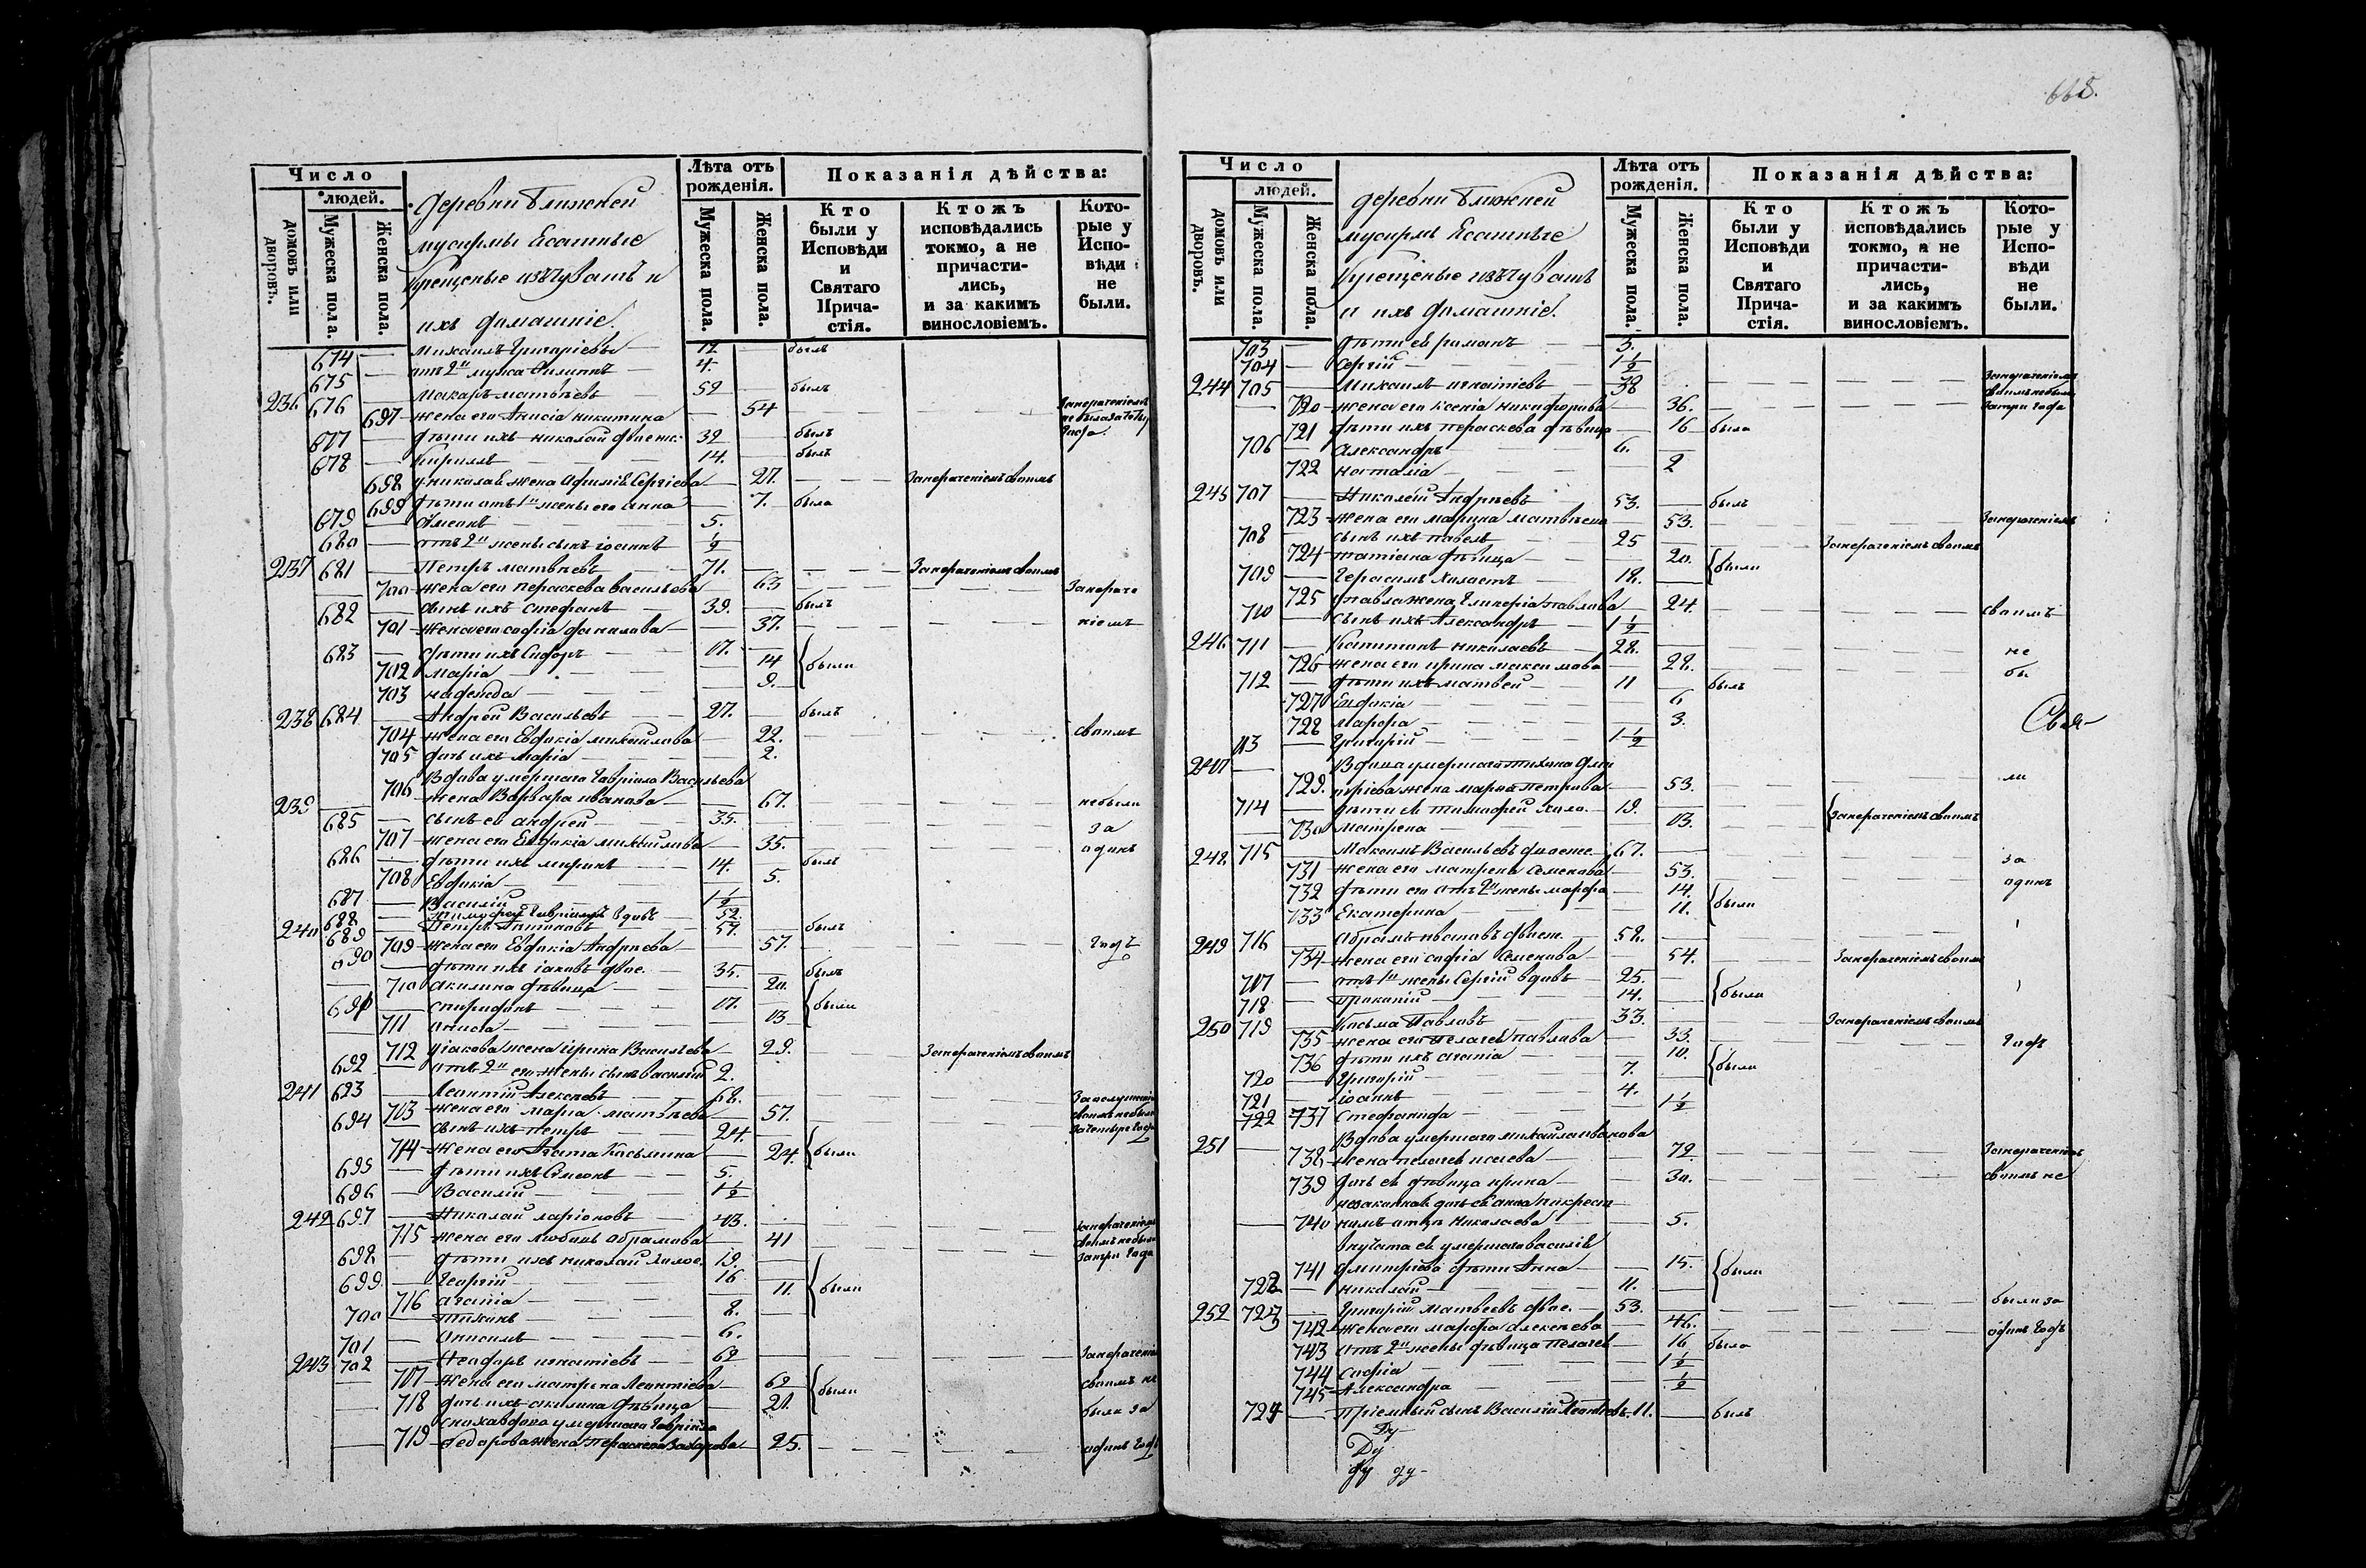 668.
Число
людей.
домовъ или дворовъ.
Мужеска пола.
Женска пола.
деревни Ближней
мусирмы Ясашные
Крещеные изъ Чувашъ и
ихъ домашніе.
Лѣта отъ рожденія.
Мужеска пола.
Женска пола.
Показанія дѣйства:
Кто были у Исповѣди и Святаго Прича-стія.
Ктожъ исповѣдались токмо, а не причасти-лись, и за какимъ винословіемъ.
Кото-рые у Испо-вѣди не были.
674 — Михаилъ Григоріевъ — 12 — былъ
675 — отъ 2го мужа Филиппъ — 4.
236 676 — Макаръ Матвѣевъ — 52 — былъ
697 жена его Анисія Никитина — 54
677 — дѣти ихъ Николай двоежс. 32 — былъ
678 — Кириллъ — 14. — былъ
698 у Николая жена Афимія Сергіева — 27. — За нераченіемъ своимъ
699 дѣти отъ 1й жены его Анна — 7. была
679 — Симеонъ — 5.
680 — отъ 2й жены сынъ Іоаннъ — 1/2
237 681 — Петръ Матвѣевъ — 71. — За нераченіемъ своимъ
700 жена его Пераскева Васильева — 63 — За нераче
682 — сынъ ихъ Стефанъ — 39. — былъ
701 жена его Софія Данилова — 37. — ніемъ
683 — дѣти ихъ Сидоръ — 17.
702 Марія — 14 } были
703 Надежда — 9.
238 684 — Андрей Васильевъ — 27. — былъ
704 жена его Евдокія Михайлова — 22. — своимъ
705 дочь ихъ Марія — 2.
Вдова умершаго Гавріила Васильева
239 — 706 жена Варвара Иванова — 67. — небыли
685 — сынъ ея Андрей — 35. — за
707 жена его Евдокія Михайлова — 35. — одинъ
686 — дѣти ихъ Миронъ — 14. — былъ
708 Евдокія — 5.
687 — Василій — 1 1/2
688 — Тимофей Гавріиловъ вдовъ — 52.
240 689 — Петръ Антоновъ — 57. — былъ
709 жена его Евдокія Андреева — 57. — годъ
690 — дѣти ихъ Іаковъ двое. — 35. — былъ
710 Акилина дѣвица — 20. } были
691 — Спиридонъ — 17.
711 Аниса — 13
712 у Іакова жена Ирина Васильева — 29. — За нераченіемъ своимъ
692 — отъ 2й его жены сынъ Василій 2.
241 693 — Леонтій Алексѣевъ — 68.
703 жена его Марѳа Матвѣева — 57.
694 — сынъ ихъ Петръ — 24.
714 жена его Агата Косьмина — 24. } были
695 — дѣти ихъ Симеонъ — 5.
696 — Василій — 1 1/2
242 697 — Николай Ларіоновъ — 43.
715 жена его Любовь Абрамова — 41
698 — дѣти ихъ Николай холос. 19.
699. — Георгій — 16
716 Агапія — 11. } были
700 — Тихонъ — 8.
701 — Онисимъ — 6.
243 702 — Неодоръ Игнатіевъ — 62 — За нераченіемъ
717 жена его Матрена Леонтіева — 62 } были
718 дочь ихъ Акилина дѣвица — 20. — были за
сноха вдова умершаго Гавріила
719 Ѳедорова жена Пераскева Захарова — 25. — одинъ годъ
Число
людей.
домовъ или дворовъ.
Мужеска пола.
Женска пола.
деревни Ближней
мусирмѣ Ясашные
Крещеные изъ Чувашъ
и ихъ домашніе.
Лѣта отъ рожденія.
Мужеска пола.
Женска пола.
Показанія дѣйства:
Кто были у Исповѣди и Святаго Прича-стія.
Ктожъ исповѣдались токмо, а не причасти-лись, и за какимъ винословіемъ.
Кото-рые у Испо-вѣди не были.
703 — дѣти ея Романъ — 3.
704 — Сергій — 1 1/2
244 705 — Михаилъ Игнатіевъ — 38 — За нераченіемъ своимъ небыли
720 жена его Ксенія Никифорова — 36. — за три года
721 дѣти ихъ Пераскева дѣвица — 16 была
706 — Александръ — 6.
722 Наталія — 2
245 707 — Николай Андреевъ — 53. — былъ
723 жена его Марина Матвѣева — 53. — За нераченіемъ
708 — сынъ ихъ Павелъ — 25 — За нераченіемъ своимъ
724 Татіана дѣвица — 20. } были
709 — Герасимъ холостъ — 18.
725 у Павла жена Гликерія Павлова — 24. — своимъ
710 — сынъ ихъ Александръ — 1 1/2
246 711 — Капитонъ Николаевъ — 28. — не
726 жена его Ирина Максимова — 28. — бы
712 — дѣти ихъ Матвей — 11 — былъ
727 Евдокія — 6
728 Марѳа — 3.
713 — Григорій — 1 1/2
Свя-
247 — Вдова умершаго Тихона Дми
729. тріева жена Марія Петрова — 53. — ли
714 — дѣти ея Тимофей холо. — 19. } За нераченіемъ своимъ
730 Матрена — 13.
248 715 — Максимъ Васильевъ двоеже. — 67. — за
731 жена его Матрена Семенова — 53. — одинъ
732 дѣти его отъ 2й жены Марѳа — 14 } были
733 Екатерина — 11.
249 716 — Абрамъ Ивановъ двоеж. — 58.
734 жена его Софія Семенова — 54. — За нераченіемъ своимъ
717 — отъ 1й жены Сергій вдовъ — 25. } были
718 — Прокопій — 14.
250 719 — Косьма Павловъ — 33. — За нераченіемъ своимъ
735 жена его Пелагея Павлова — 33. — годъ
736 дѣти ихъ Агапія — 10. } были
720 — Григорій — 7.
721 — Іоаннъ — 4.
722 737 Стефанида — 1 1/2
251 — Вдова умершаго Михайла Иванова
738 жена Пелагея Исаева — 72. — За нераченіемъ
739 дочь ея дѣвица Ирина — 30. — своимъ не
незаконная дочь ея Анна по крест
740 номъ отцѣ Николаева — 5.
внучата ея умершаго Василія
741 Дмитріева дѣти Анна — 15. } были
722 — Николай — 11.
252 723 — Григорій Матвеевъ двое. — 53. — были за
742 жена его Марѳа Алексѣева — 46. — одинъ годъ
743 отъ 2й жены дѣвица Пелагея — 16 была
744 Софія — 1 1/2
745 Александра — 1/2
724 — Пріемный сынъ Василій Леонтіевъ. 11. — былъ
Ду
Ду
ду ду-